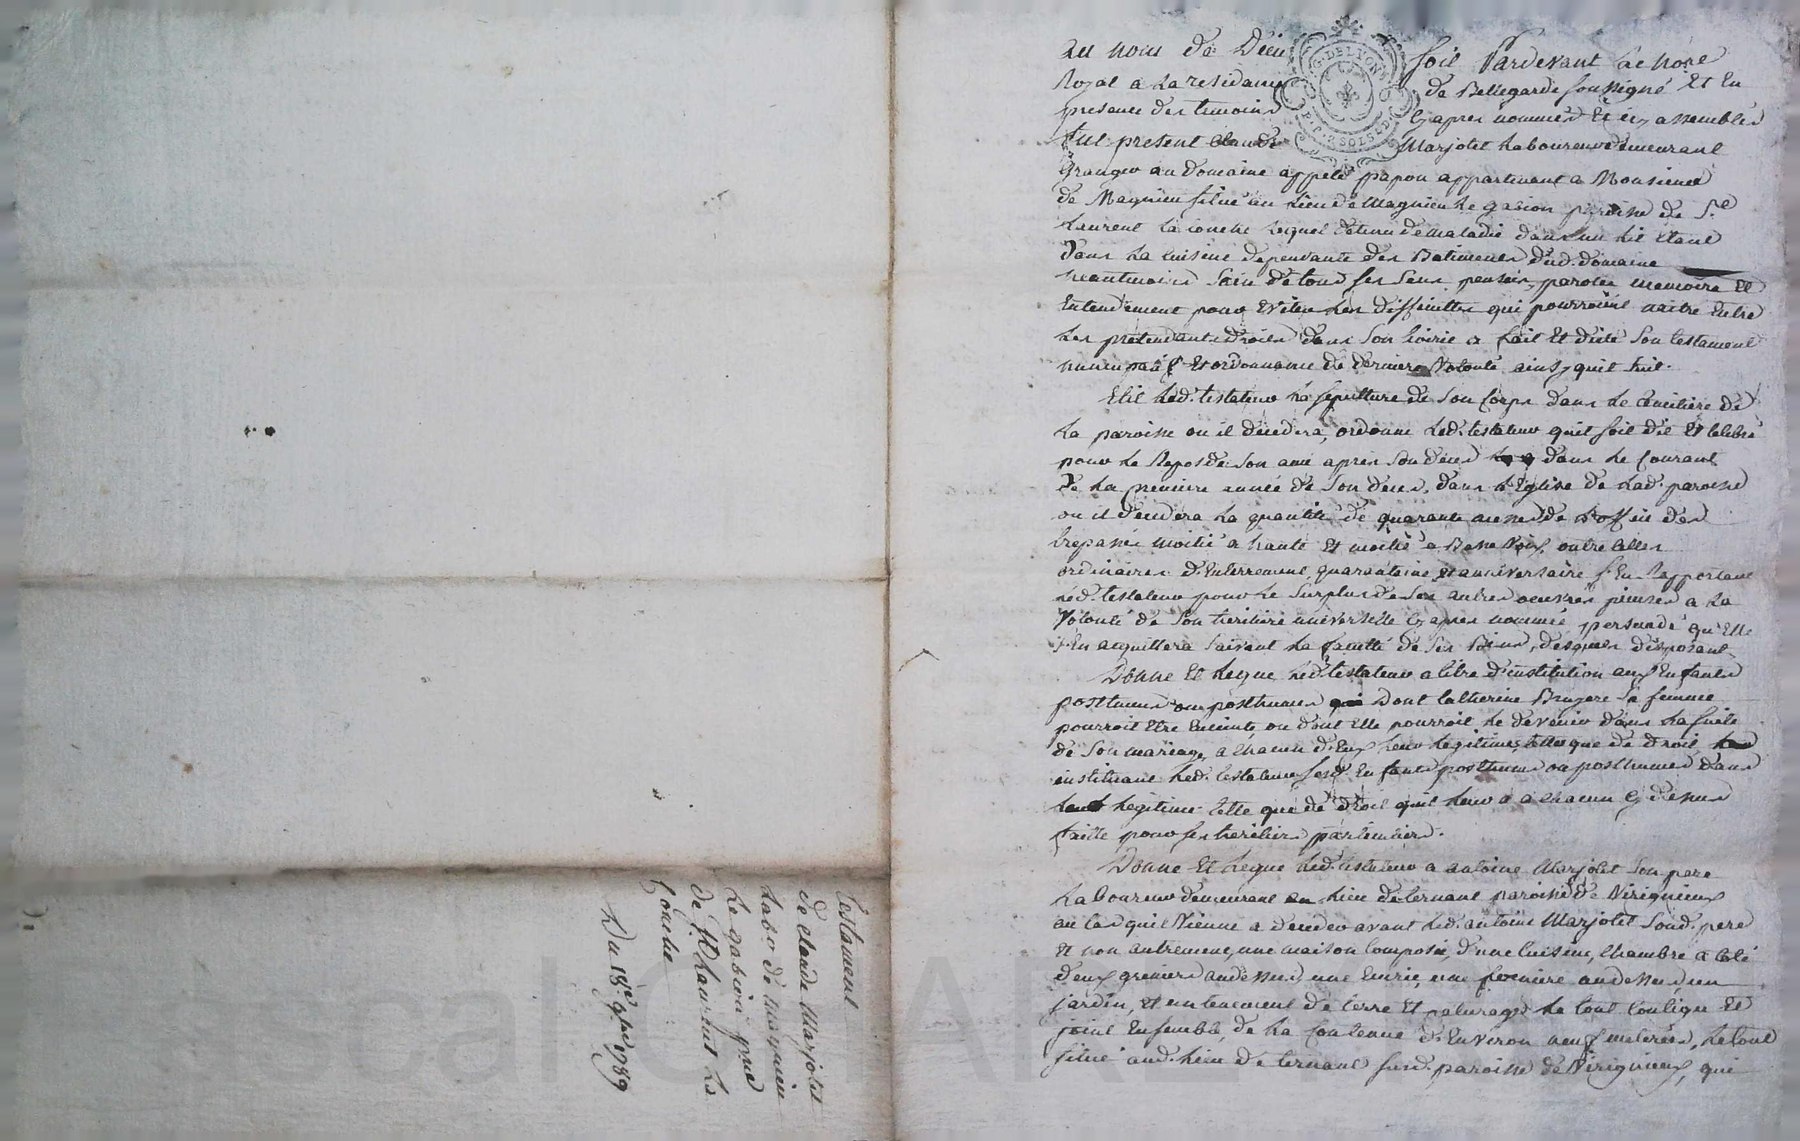 au nom de Dieu soit Pardevant Le no.re
Royal a La residance de Bellegarde soussigné Et En
presence des temoins Cy apres nommes Et icy assemblés
fut present Claude Marjolet Laboureur demeurant
Granger au Domaine appelé papon appartenant a Monsieur
de Magnieu situé au Lieu de Magnieu Le gabion paroisse de S.t
Laurent La Conche Lequel detenu de maladie dans un Lit etant
dans La Cuisine dependante des Batiments dud. domaine
neantmoins Sain de tous ses Sens, pensée, parolle memoire Et
Entendement pour Eviter Les difficultes qui pourroient naitre Entre
Les pretendants droits dans Son hoirie a fait Et dicté Son testament
nuncupatif Et ordonnance de derniere Volonté ainsy quil suit.
Elit Led. testateur La sepulture de Son Corps dans Le Cimetiere de
La paroisse ou il decedera, ordonne Led. testateur quil soit dit Et Celebré
pour Le Repos de Son ame apres Son deces dans Le Courant
De La premiere année de Son deces, dans L'Eglise de Lad. paroisse
ou il decedera La quantité de quarante messes de Loffice des
trepassés moitié a haute Et moitié a Basse Voix, outre Celles
ordinaires d'Enterrement, quarantaine, Et anniversaire s'En Rapportant
Led. testateur pour Le Surplus de Ses autres oeuvres pieuses a La
Volonté de Son heritiere universelle Cy apres nommée persuadé qu'Elle
s'En acquittera Suivant La faculté de Ses Biens, desquels disposant
Donne Et Legue Led. testateur a titre d'institution aux Enfants
posthumes ou posthumes Dont Catherine Bruyere Sa femme
pourroit Etre Enceinte, ou dont Elle pourroit Le devenir dans La Suite
de Son mariage, a Chacun d'Eux Leur Legitime telle que de droit
instituant Led. testateur Sesd. Enfants posthumes ou posthumes dans
Leur Legitime telle que de droit quil Leur a a Chacun Cy dessus
faitte pour ses heritiers particuliers.
Donne Et Legue Led. testateur a antoine Marjolet Son pere
Laboureur demeurant au Lieu de ternant paroisse de Virignieux
au Cas quil Vienne a deceder avant Led. antoine Marjolet Sond. pere
Et non autrement, une maison Composée, d'une Cuisine, Chambre a Coté
deux greniers audessus, une Ecurie, une feniere audessus, un
jardin, Et un tenement de terre Et paturages Le tout Contigu Et
joint Ensemble, de La Contenue d'Environ neuf meterées, Le tout
situé aud. Lieu de ternant susd. paroisse de Virignieux, qui
testament
de Claude Marjolet
Labo.r de magnieu
Le gabion p.sse
de S.t Laurent La
Conche
Du 18.e 9bre 1789